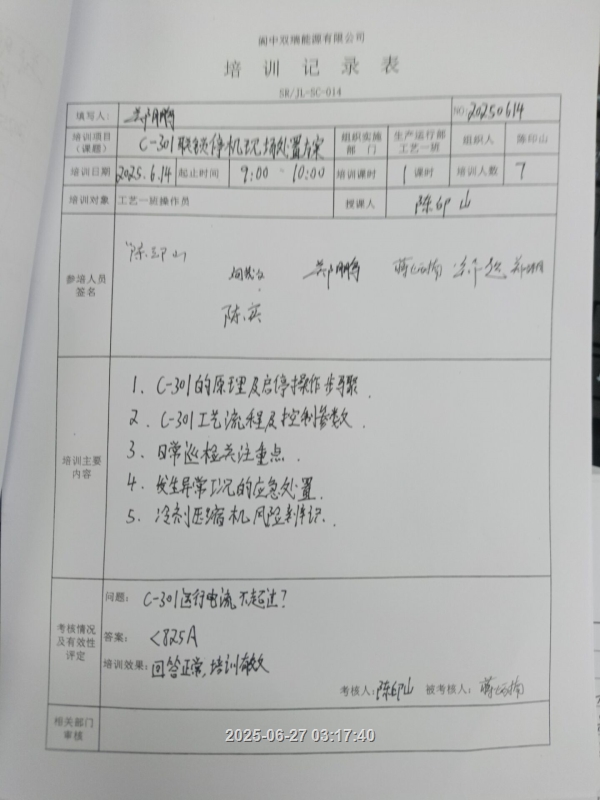 阆中双瑞能源有限公司
培训记录表
SR/JL-SC-014
填写人: 郑明鹏 NO:20250614
培训项目(课题) C-301联锁停机现场处置方案 组织实施部门 生产运行部工艺一班 组织人 陈印山
培训日期 2025.6.14 起止时间 9:00-10:00 培训课时 1课时 培训人数 7
培训对象 工艺一班操作员 授课人 陈印山
参培人员签名
陈印山
郑明鹏
陈
培训主要内容
1. C-301的原理及启停操作步骤.
2. C-301工艺流程及控制参数.
3. 日常巡检关注重点.
4. 发生异常工况的应急处置.
5. 冷剂压缩机风险辨识.
考核情况及有效性评定
问题: C-301运行电流不超过?
答案: <825A
培训效果: 回答正常,培训有效
考核人: 陈印山 被考核人:
相关部门审核
2025-06-27 03:17:40